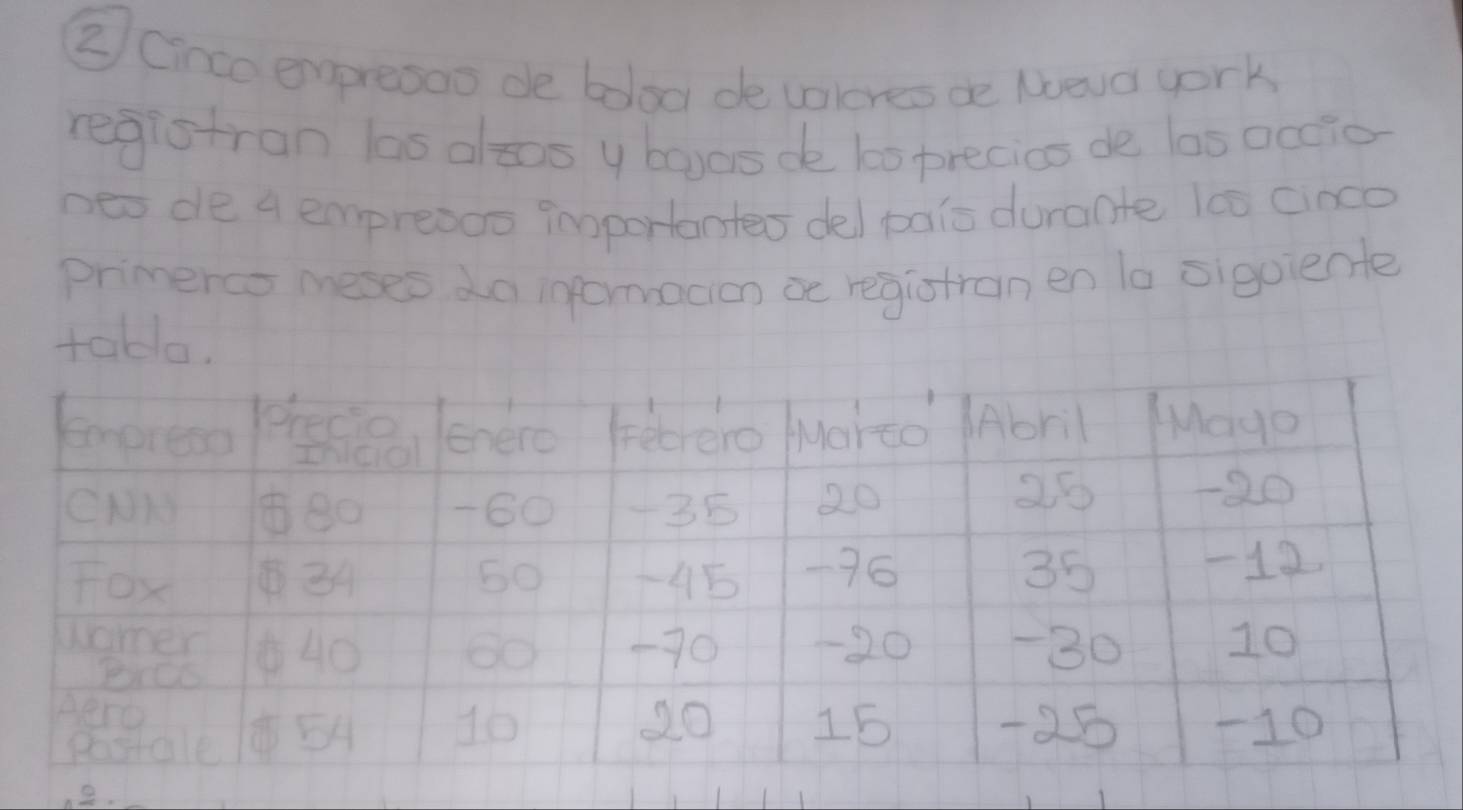 2 Cinco empresas de bolsa de valores de Nueva york
registran las alzas y bajas de los precios de las accio-
nes de 4 empresas importantes del país durante los cinco
primeros meses La informacion se registran en la siguiente
tabla.
Empresa Precio Inicial Enero Febrero Marzo Abril Mayo
CNN $80 -60 -35 20 25 -20
Fox $34 50 -45 -76 35 -12
Warner Bros $40 60 -70 -20 -30 10
Aero Postale $54 10 20 15 -25 -10